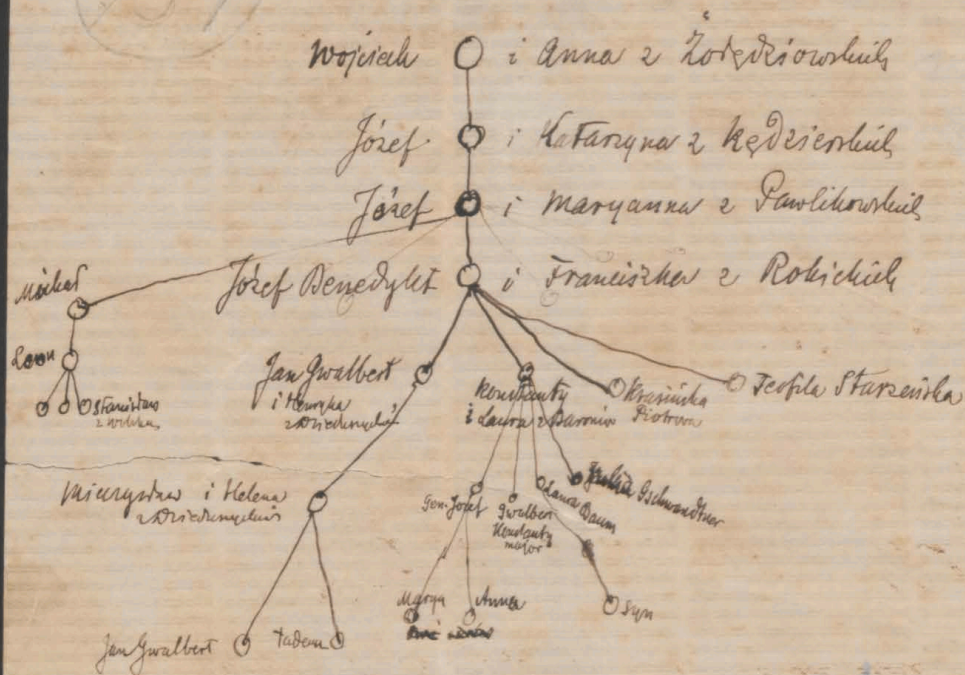 Wojciech i Anna z Żołędziowskich
Józef i Katarzyna z Kędzierskich
Józef i Maryanna z Pawlikowskich
Józef Benedykt i Franciszka z Rokickich
Michał
Leon
Stanisław
Jan Gwalbert
i Henryka
z Dzieduszyckich
Konstanty
i Laura z Baronów
Krasińska
Piotrowa
Teofila Starzeńska
Mieczysław i Helena
z Dzieduszyckich
Gen. Józef
Gwalbert
Konstanty
major
Laura Daum
Julia Gschwandtner
Marya
Anna
Syn
Jan Gwalbert
Tadeusz